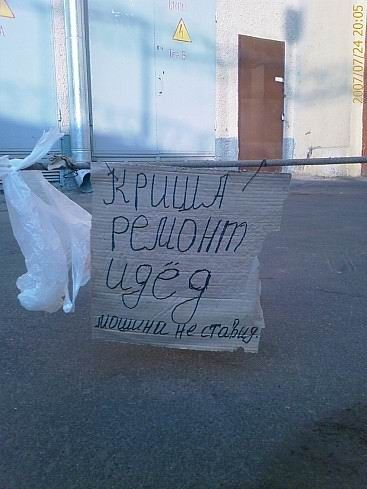 2007/07/24 20:05
КРИША
РЕМОНТ
ИДЁД
мошина не ставид.